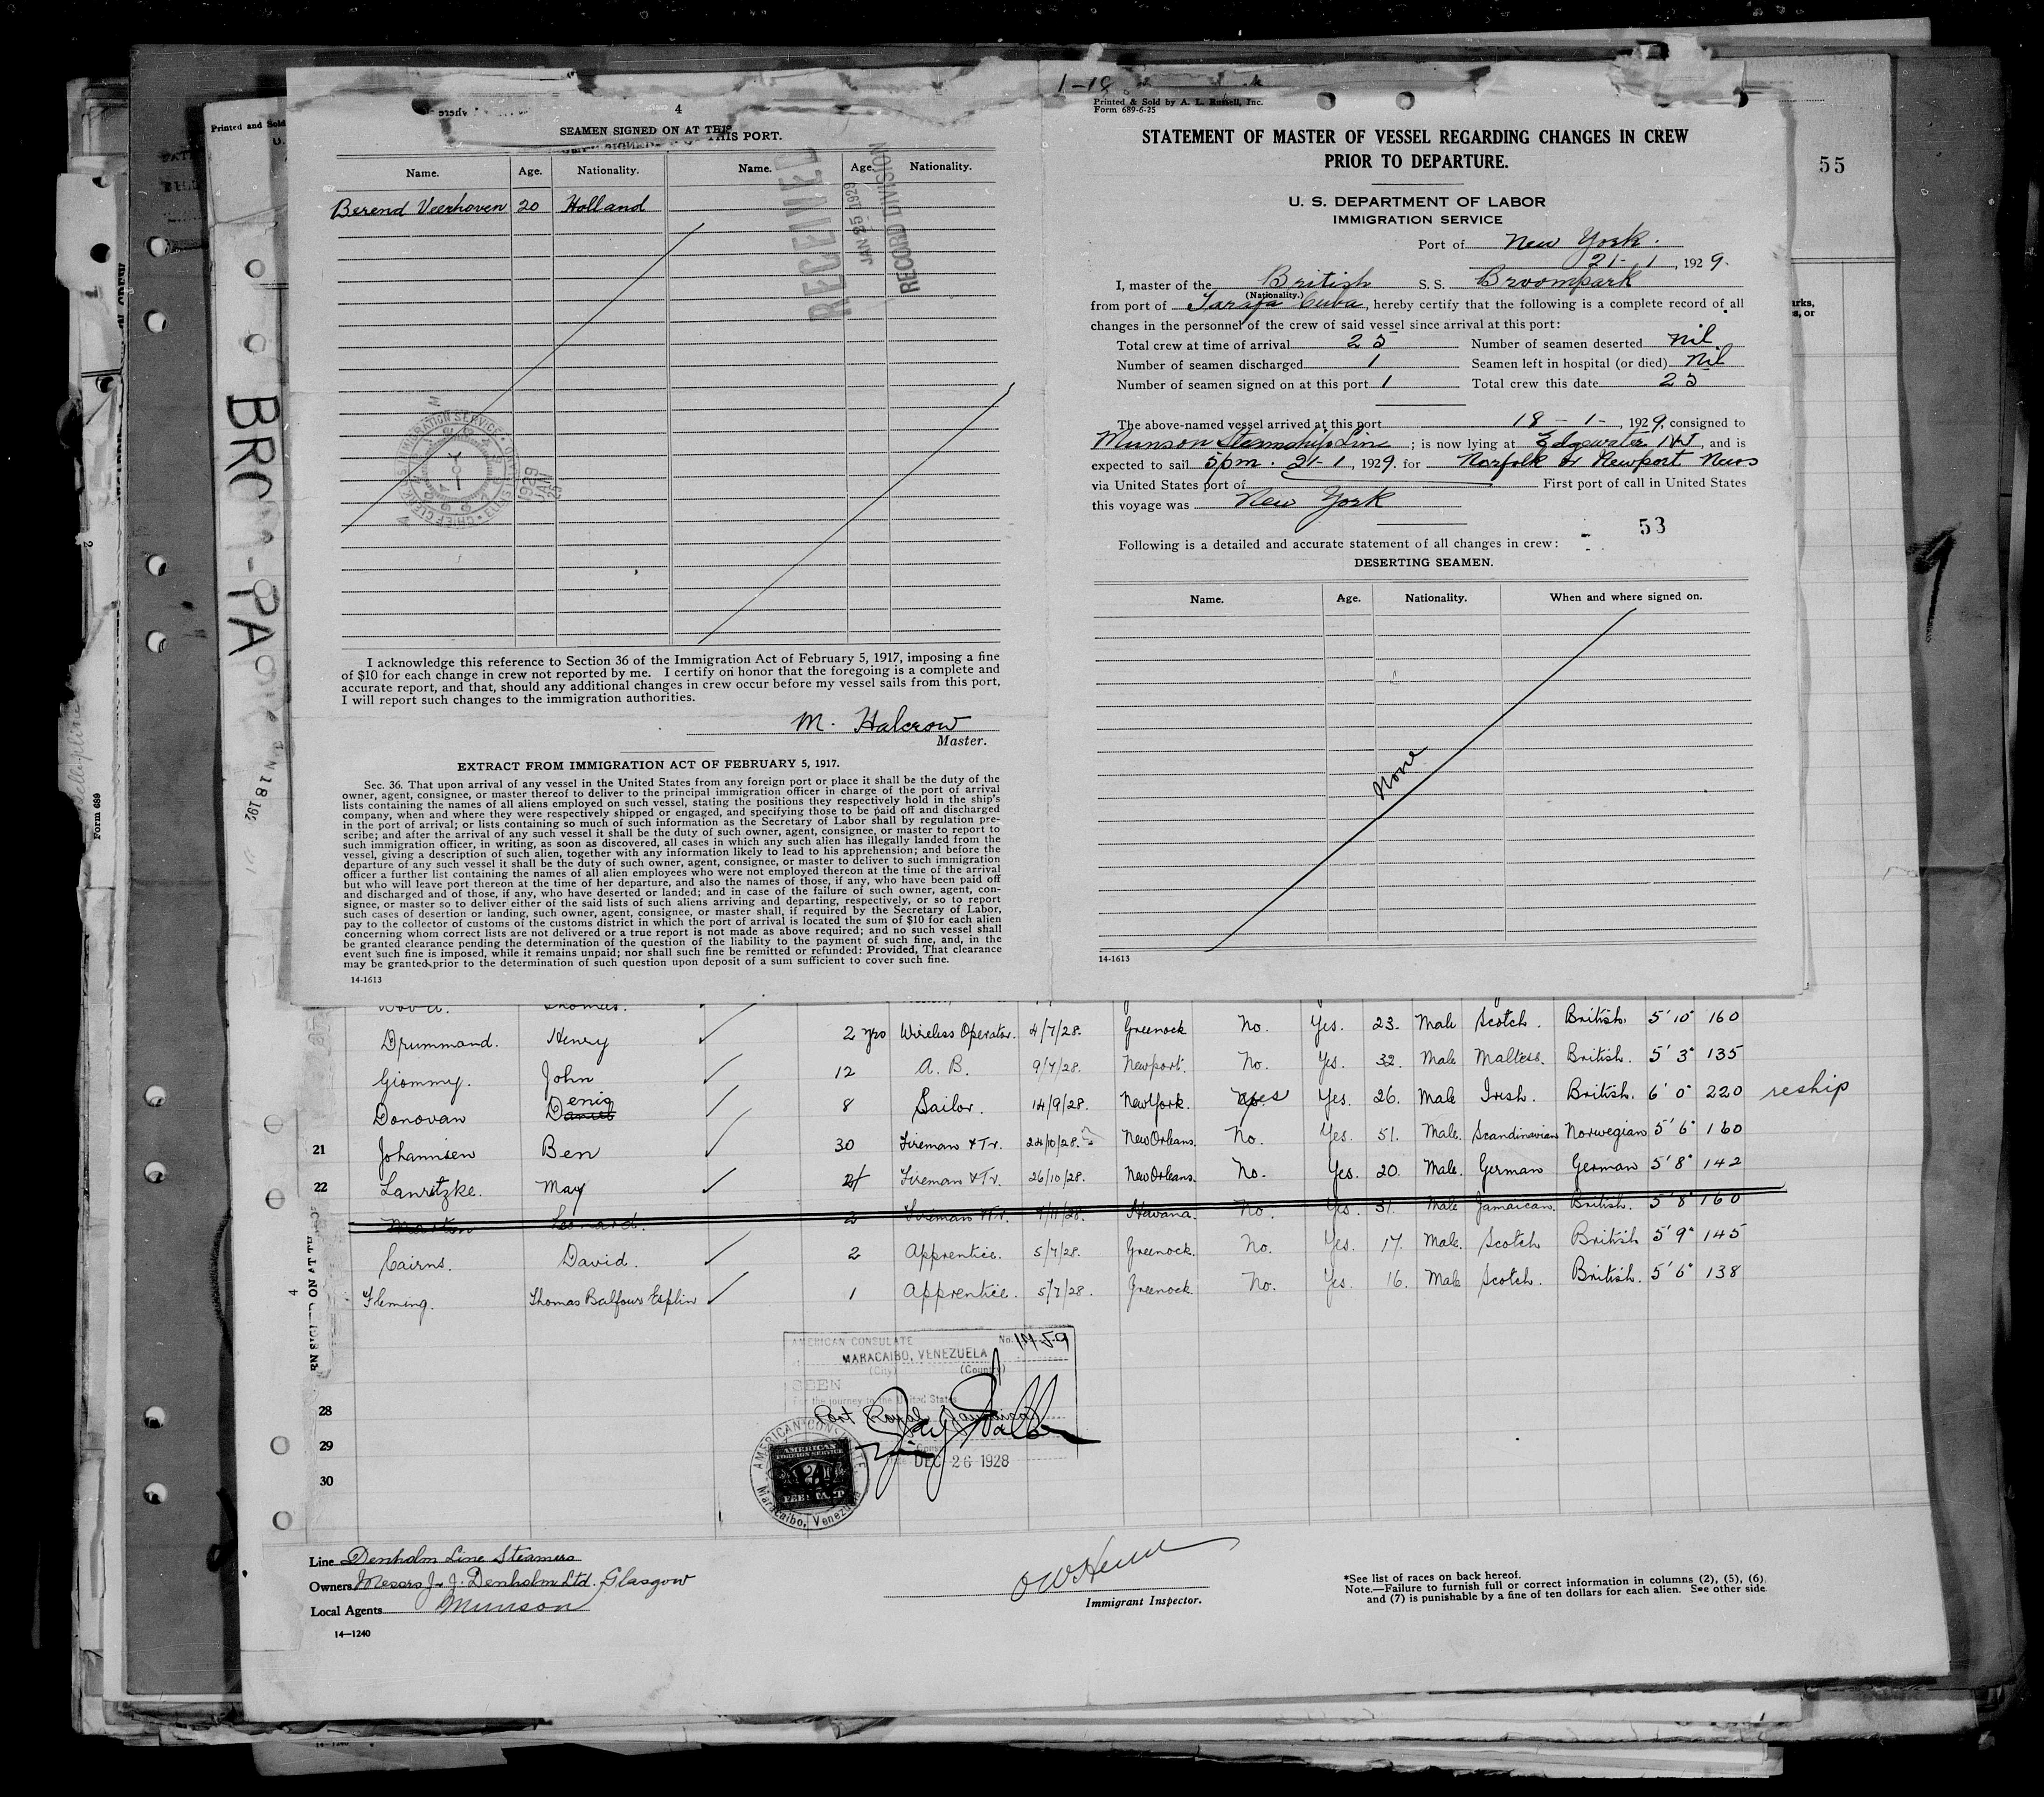 4
SEAMEN SIGNED ON AT THIS
THIS PORT.
Name. Age. Nationality. Name. Age. Nationality.
Berend Veerhoven 20 Holland
RECEIVED
JAN 25 1929
RECORD DIVISION
I acknowledge this reference to Section 36 of the Immigration Act of February 5, 1917, imposing a fine
of $10 for each change in crew not reported by me. I certify on honor that the foregoing is a complete and
accurate report, and that, should any additional changes in crew occur before my vessel sails from this port,
I will report such changes to the immigration authorities.
M. Halcrow
Master.
EXTRACT FROM IMMIGRATION ACT OF FEBRUARY 5, 1917.
Sec. 36. That upon arrival of any vessel in the United States from any foreign port or place it shall be the duty of the
owner, agent, consignee, or master thereof to deliver to the principal immigration officer in charge of the port of arrival
lists containing the names of all aliens employed on such vessel, stating the positions they respectively hold in the ship's
company, when and where they were respectively shipped or engaged, and specifying those to be paid off and discharged
in the port of arrival; or lists containing so much of such information as the Secretary of Labor shall by regulation pre-
scribe; and after the arrival of any such vessel it shall be the duty of such owner, agent, consignee, or master to report to
such immigration officer, in writing, as soon as discovered, all cases in which any such alien has illegally landed from the
vessel, giving a description of such alien, together with any information likely to lead to his apprehension; and before the
departure of any such vessel it shall be the duty of such owner, agent, consignee, or master to deliver to such immigration
officer a further list containing the names of all alien employees who were not employed thereon at the time of the arrival
but who will leave port thereon at the time of her departure, and also the names of those, if any, who have been paid off
and discharged and of those, if any, who have deserted or landed; and in case of the failure of such owner, agent, con-
signee, or master so to deliver either of the said lists of such aliens arriving and departing, respectively, or so to report
such cases of desertion or landing, such owner, agent, consignee, or master shall, if required by the Secretary of Labor,
pay to the collector of customs of the customs district in which the port of arrival is located the sum of $10 for each alien
concerning whom correct lists are not delivered or a true report is not made as above required; and no such vessel shall
be granted clearance pending the determination of the question of the liability to the payment of such fine, and, in the
event such fine is imposed, while it remains unpaid; nor shall such fine be remitted or refunded: Provided, That clearance
may be granted prior to the determination of such question upon deposit of a sum sufficient to cover such fine.
14-1613
1-18
Printed & Sold by A. L. Russell, Inc.
Form 689-6-25
STATEMENT OF MASTER OF VESSEL REGARDING CHANGES IN CREW
PRIOR TO DEPARTURE.
U. S. DEPARTMENT OF LABOR
IMMIGRATION SERVICE
Port of New York.
21-1, 1929.
I, master of the British S. S. Broompark
(Nationality.)
from port of Tarafa Cuba, hereby certify that the following is a complete record of all
changes in the personnel of the crew of said vessel since arrival at this port:
Total crew at time of arrival 25 Number of seamen deserted nil
Number of seamen discharged 1 Seamen left in hospital (or died) Nil
Number of seamen signed on at this port 1 Total crew this date 25
The above-named vessel arrived at this port 18-1-, 1929, consigned to
Munson Steamship Line; is now lying at Edgewater NJ, and is
expected to sail 5pm. 21-1, 1929. for Norfolk or Newport News
via United States port of First port of call in United States
this voyage was New York
53
Following is a detailed and accurate statement of all changes in crew:
DESERTING SEAMEN.
Name. Age. Nationality. When and where signed on.
None
14-1613
55
Printed and Sold
Form 689
Thomas.
Drummond. Henry 2 yrs Wireless Operator. 4/7/28. Greenock No. Yes. 23. Male Scotch. British. 5' 10" 160
Giommy. John 12 A. B. 9/7/28. Newport. No. Yes. 32. Male Maltese. British. 5' 3" 135
Donovan Daniel Denis 8 Sailor. 14/9/28. New York. yes Yes. 26. Male Irish. British. 6' 0" 220 reship
21 Johannisen Ben 30 Fireman & Tr. 24/10/28. New Orleans. No. Yes. 51. Male. Scandinavian Norwegian 5' 6" 160
22 Lanretzke. May Fireman & Tr. 26/10/28. New Orleans. No. Yes. 20. Male. German German 5' 8" 142
Marten Leonard. 2 Fireman & Tr. Havana. No. Yes. 31. Male Jamaican. British. 5' 8" 160
Cairns. David. 2 Apprentice. 5/7/28. Greenock. No. Yes. 17. Male. Scotch British 5' 9" 145
Fleming. Thomas Balfour Esplin 1 Apprentice. 5/7/28. Greenock. No. Yes. 16. Male Scotch. British. 5' 6" 138
28
29
30
AMERICAN CONSULATE No. 1459
MARACAIBO, VENEZUELA
(City) (Country)
SEEN
For the journey to the United States
Port Royal, Jamaica
DEC 26 1928
AMERICAN CONSULATE
Maracaibo, Venezuela
AMERICAN
FOREIGN SERVICE
Line Denholm Line Steamers
Owners Messrs J & J. Denholm Ltd. Glasgow
Local Agents Munson
14—1240
Immigrant Inspector.
*See list of races on back hereof.
Note.—Failure to furnish full or correct information in columns (2), (5), (6),
and (7) is punishable by a fine of ten dollars for each alien. See other side